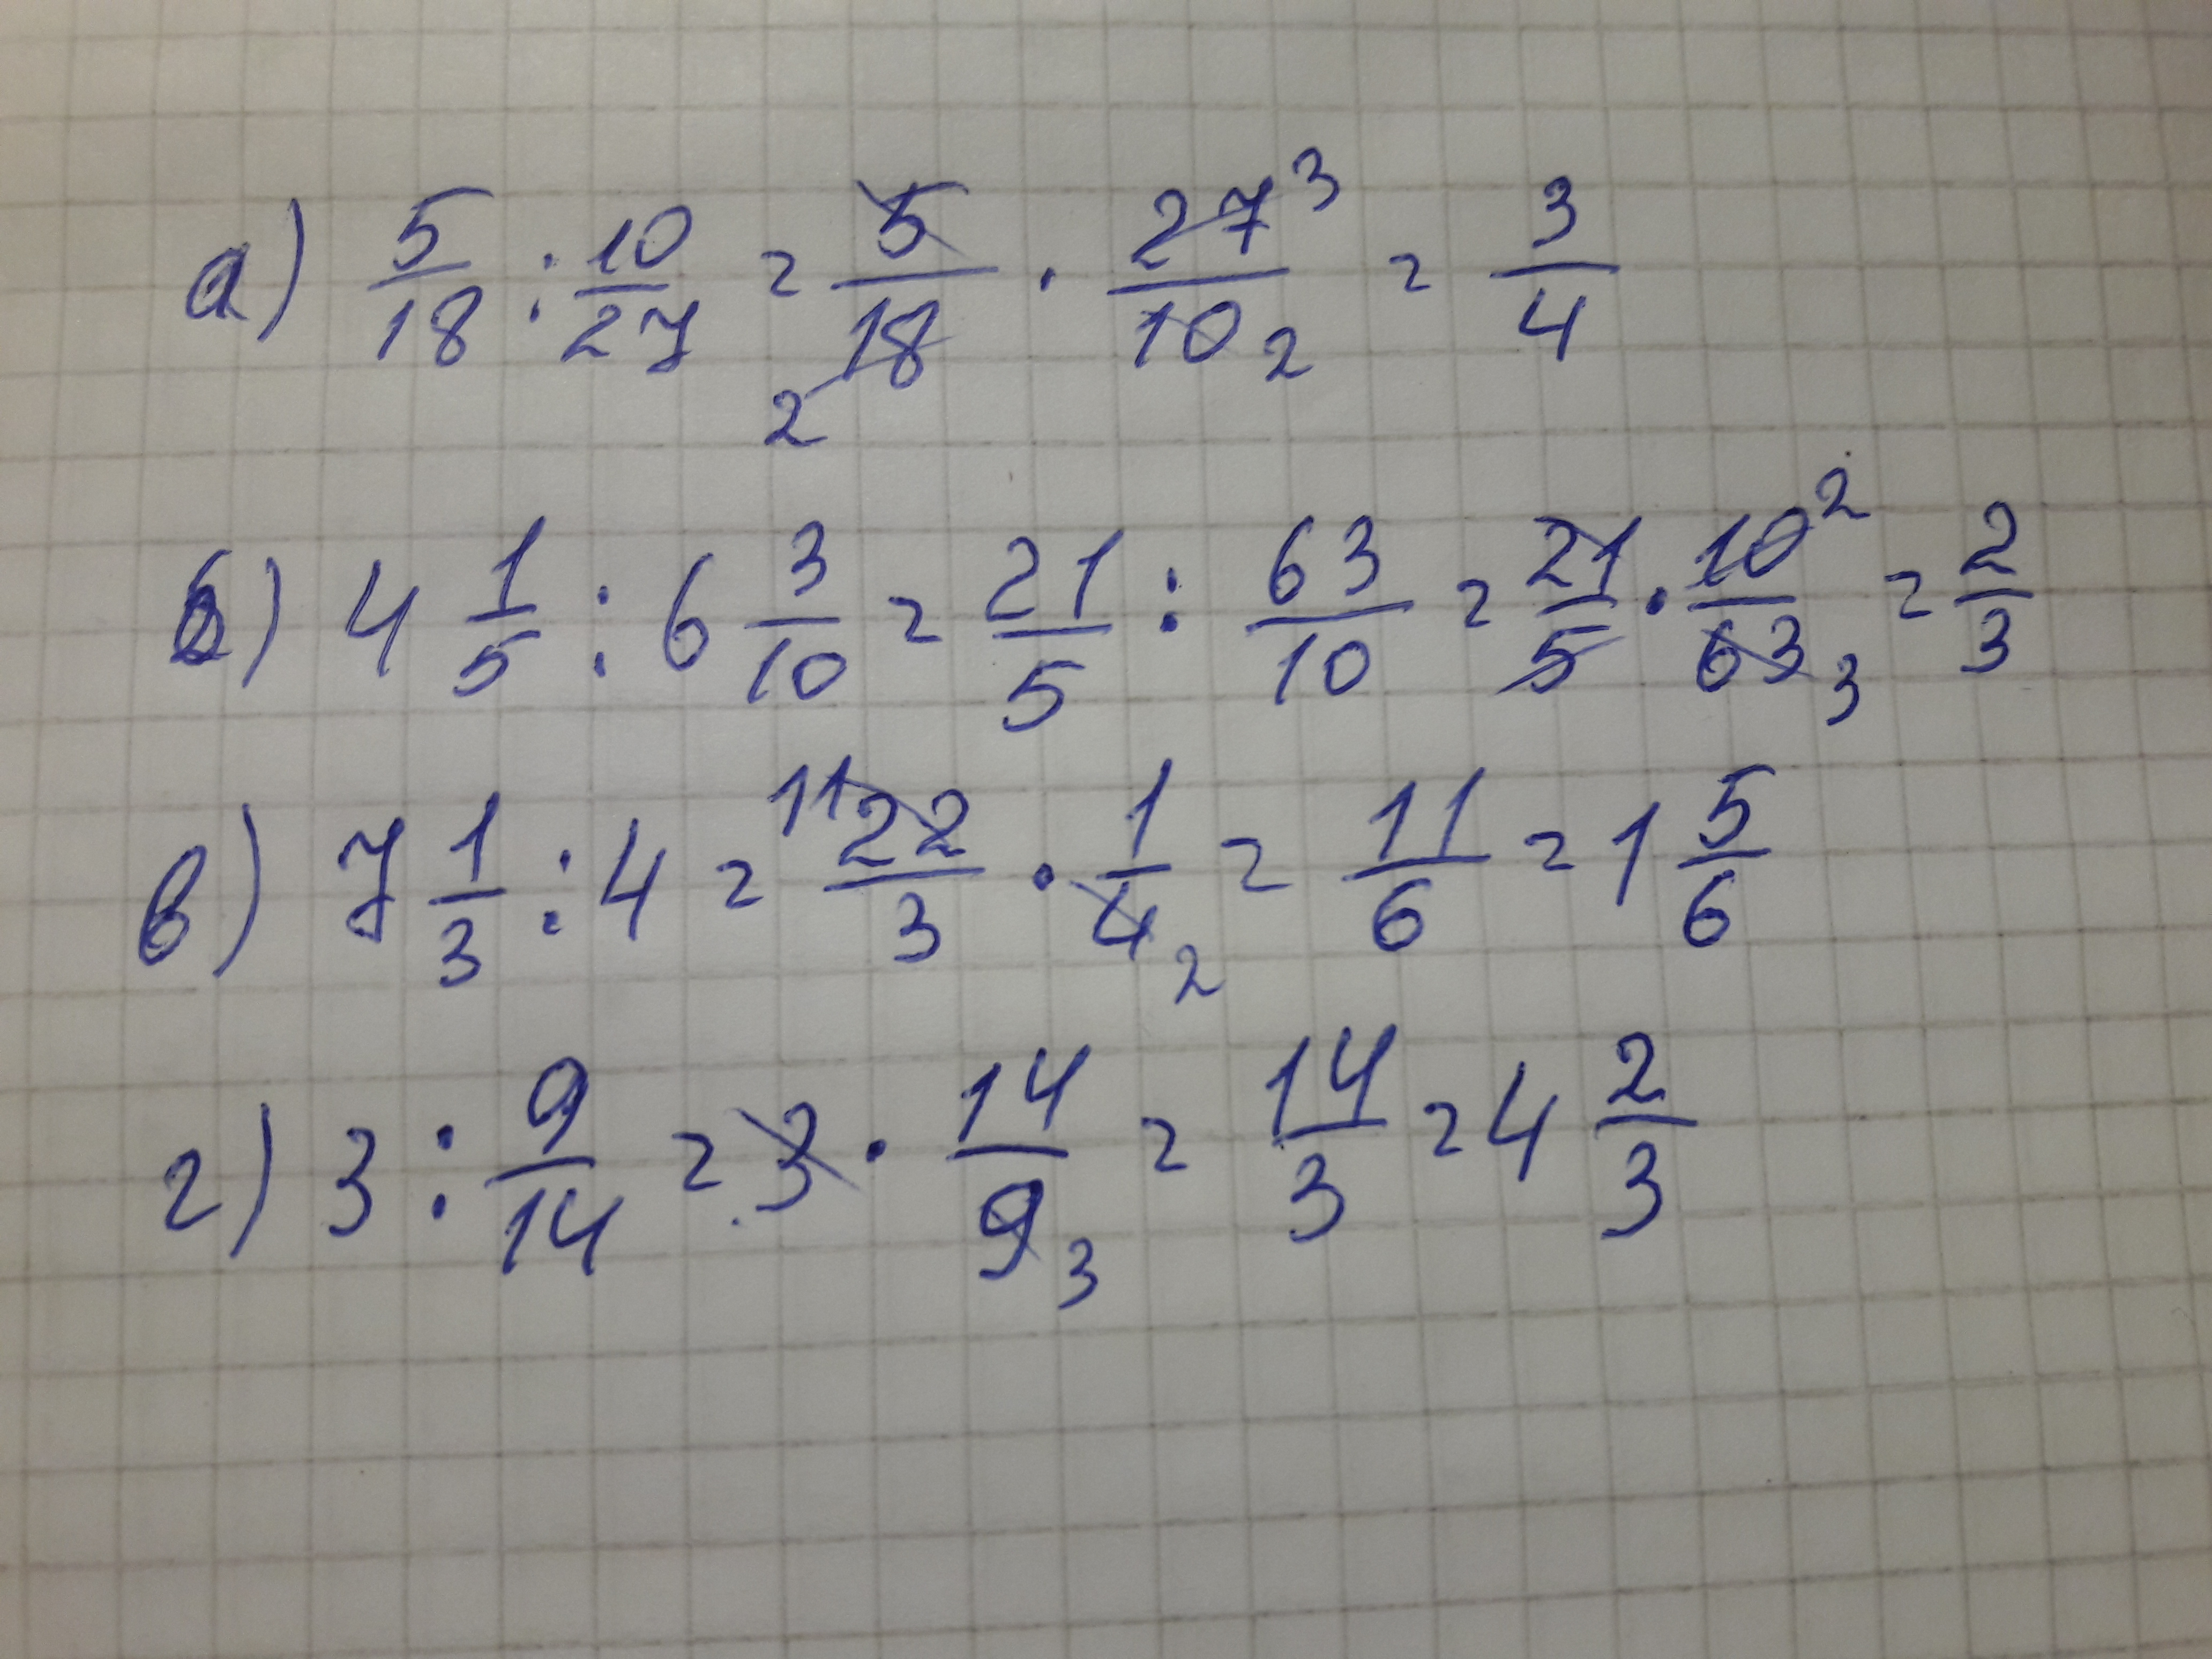 а) 5/18 : 10/27 = 5/18 2 · 27/10 3 2 = 3/4
б) 4 1/5 : 6 3/10 = 21/5 : 63/10 = 21/5 · 10/63 2 3 = 2/3
в) 7 1/3 : 4 = 11 22/3 · 1/4 2 = 11/6 = 1 5/6
г) 3 : 9/14 = 3 · 14/9 3 = 14/3 = 4 2/3